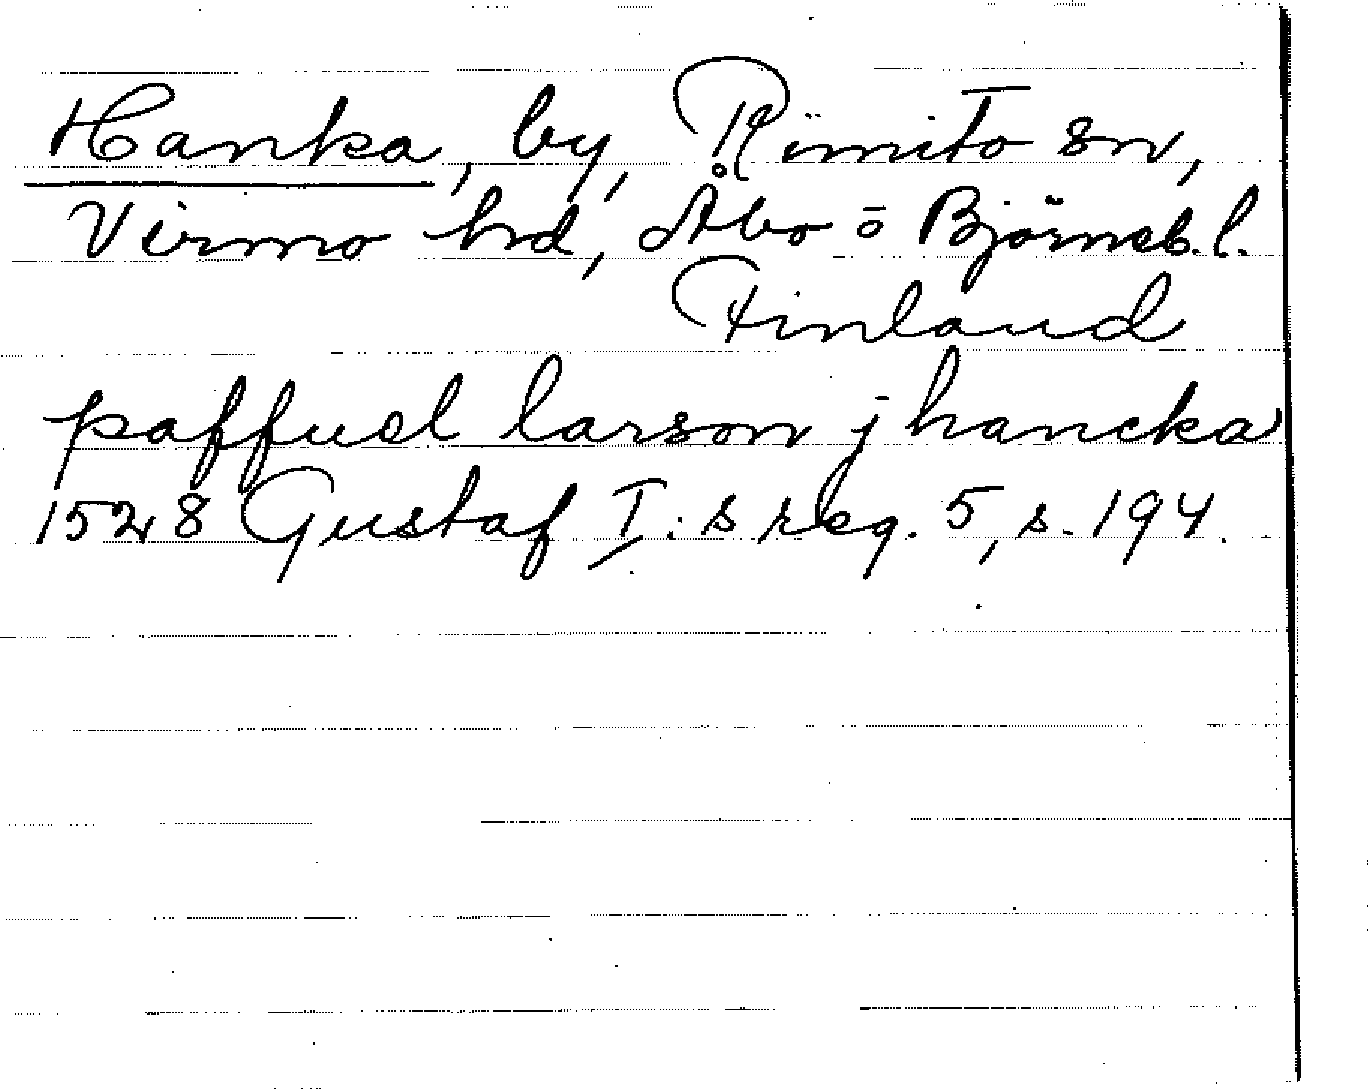 Hanka, by, Rimito sn,
Virmo hrd, Åbo o Björneb. l.
Finland
paffuel larson j hancka
1528 Gustaf I:s reg. 5, s. 194.